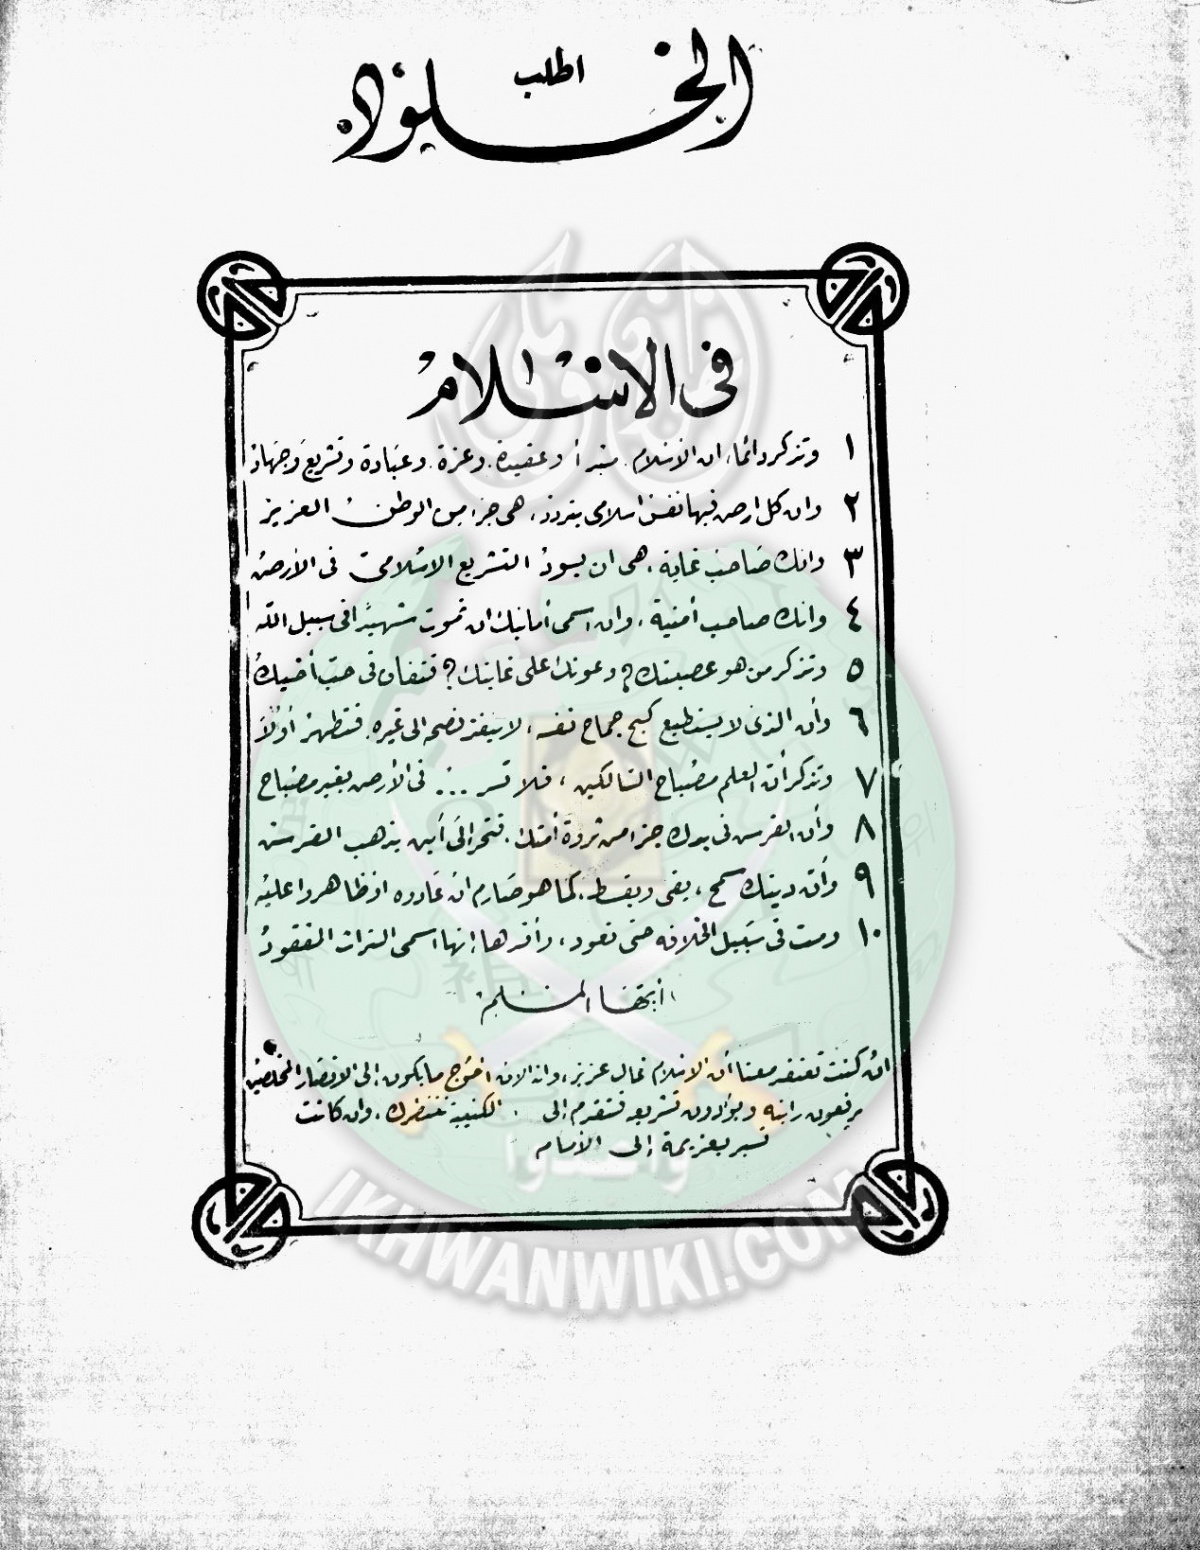 اطلب
الخلود
فى الاسلام
١ وتذكر دائما، ان الاسلام مبدأ وعقيدة. وعزة. وعبادة وتشريع وجهاد
٢ وان كل ارض فيها نفس اسلامى يتردد، هى جزء من الوطن العزيز
٣ وانك صاحب غاية، هى ان يسود التشريع الاسلامى فى الارض
٤ وانك صاحب أمنية، وان اسمى أمانيك ان تموت شهيدا فى سبيل الله
٥ وتذكر من هو عصبيتك؟ وعونك على غايتك؟ فتفان فى حب أخيك
٦ وأن الذى لا يستطيع كبح جماح نفسه، لا ينفذ نصحه الى غيره. فتطهر أولا
٧ وتذكر أن العلم مصباح السالكين، فلا تسر ... فى الأرض بغير مصباح
٨ وأن القرش فى يدك جزء من ثروة أمتك. فتحر الى أين يذهب القرش
٩ وأن دينك سمح، يفى ويقسط. كما هو صارم ان عادوه او ظاهروا عليه
١٠ ومت فى سبيل الخلافه حتى تعود، وأقرها إنها اسمى التراث المفقود
أيها المسلم
ان كنت تعتقد معنا أن الاسلام غال عزيز، وانه الان احوج ما يكون إلى الانصار المخلصين
يرفعون رايته ويؤدون تشريعه فتقدم إلى . الكتيبة تنتظرك، وان كانت
تسير بعزيمة إلى الأمام
وأعدوا
IKHWANWIKI.COM